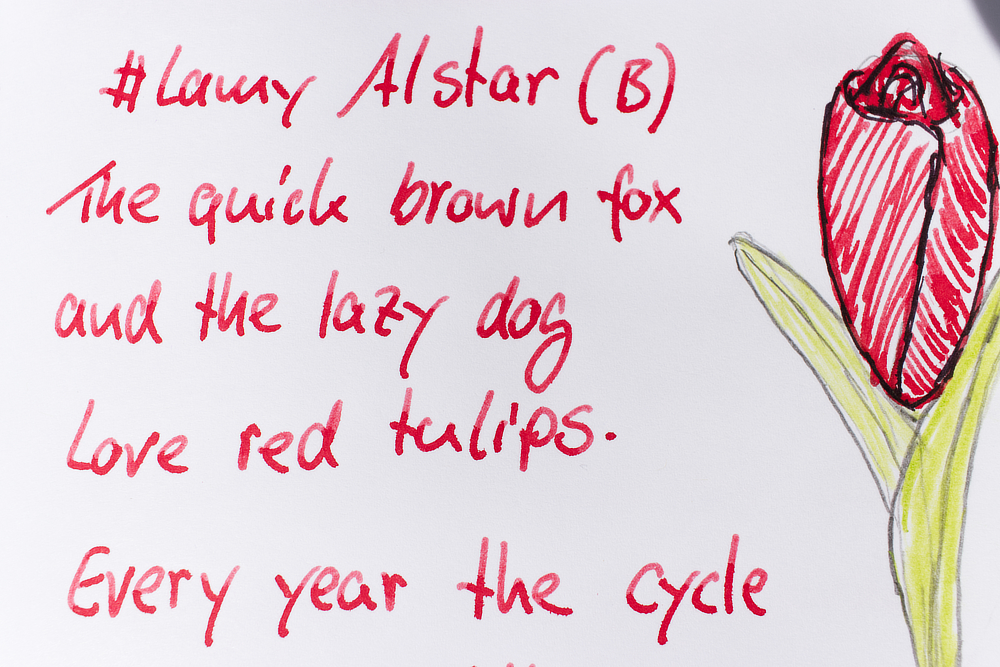 #Lamy Alstar (B)
The quick brown fox
and the lazy dog
Love red tulips.
Every year the cycle